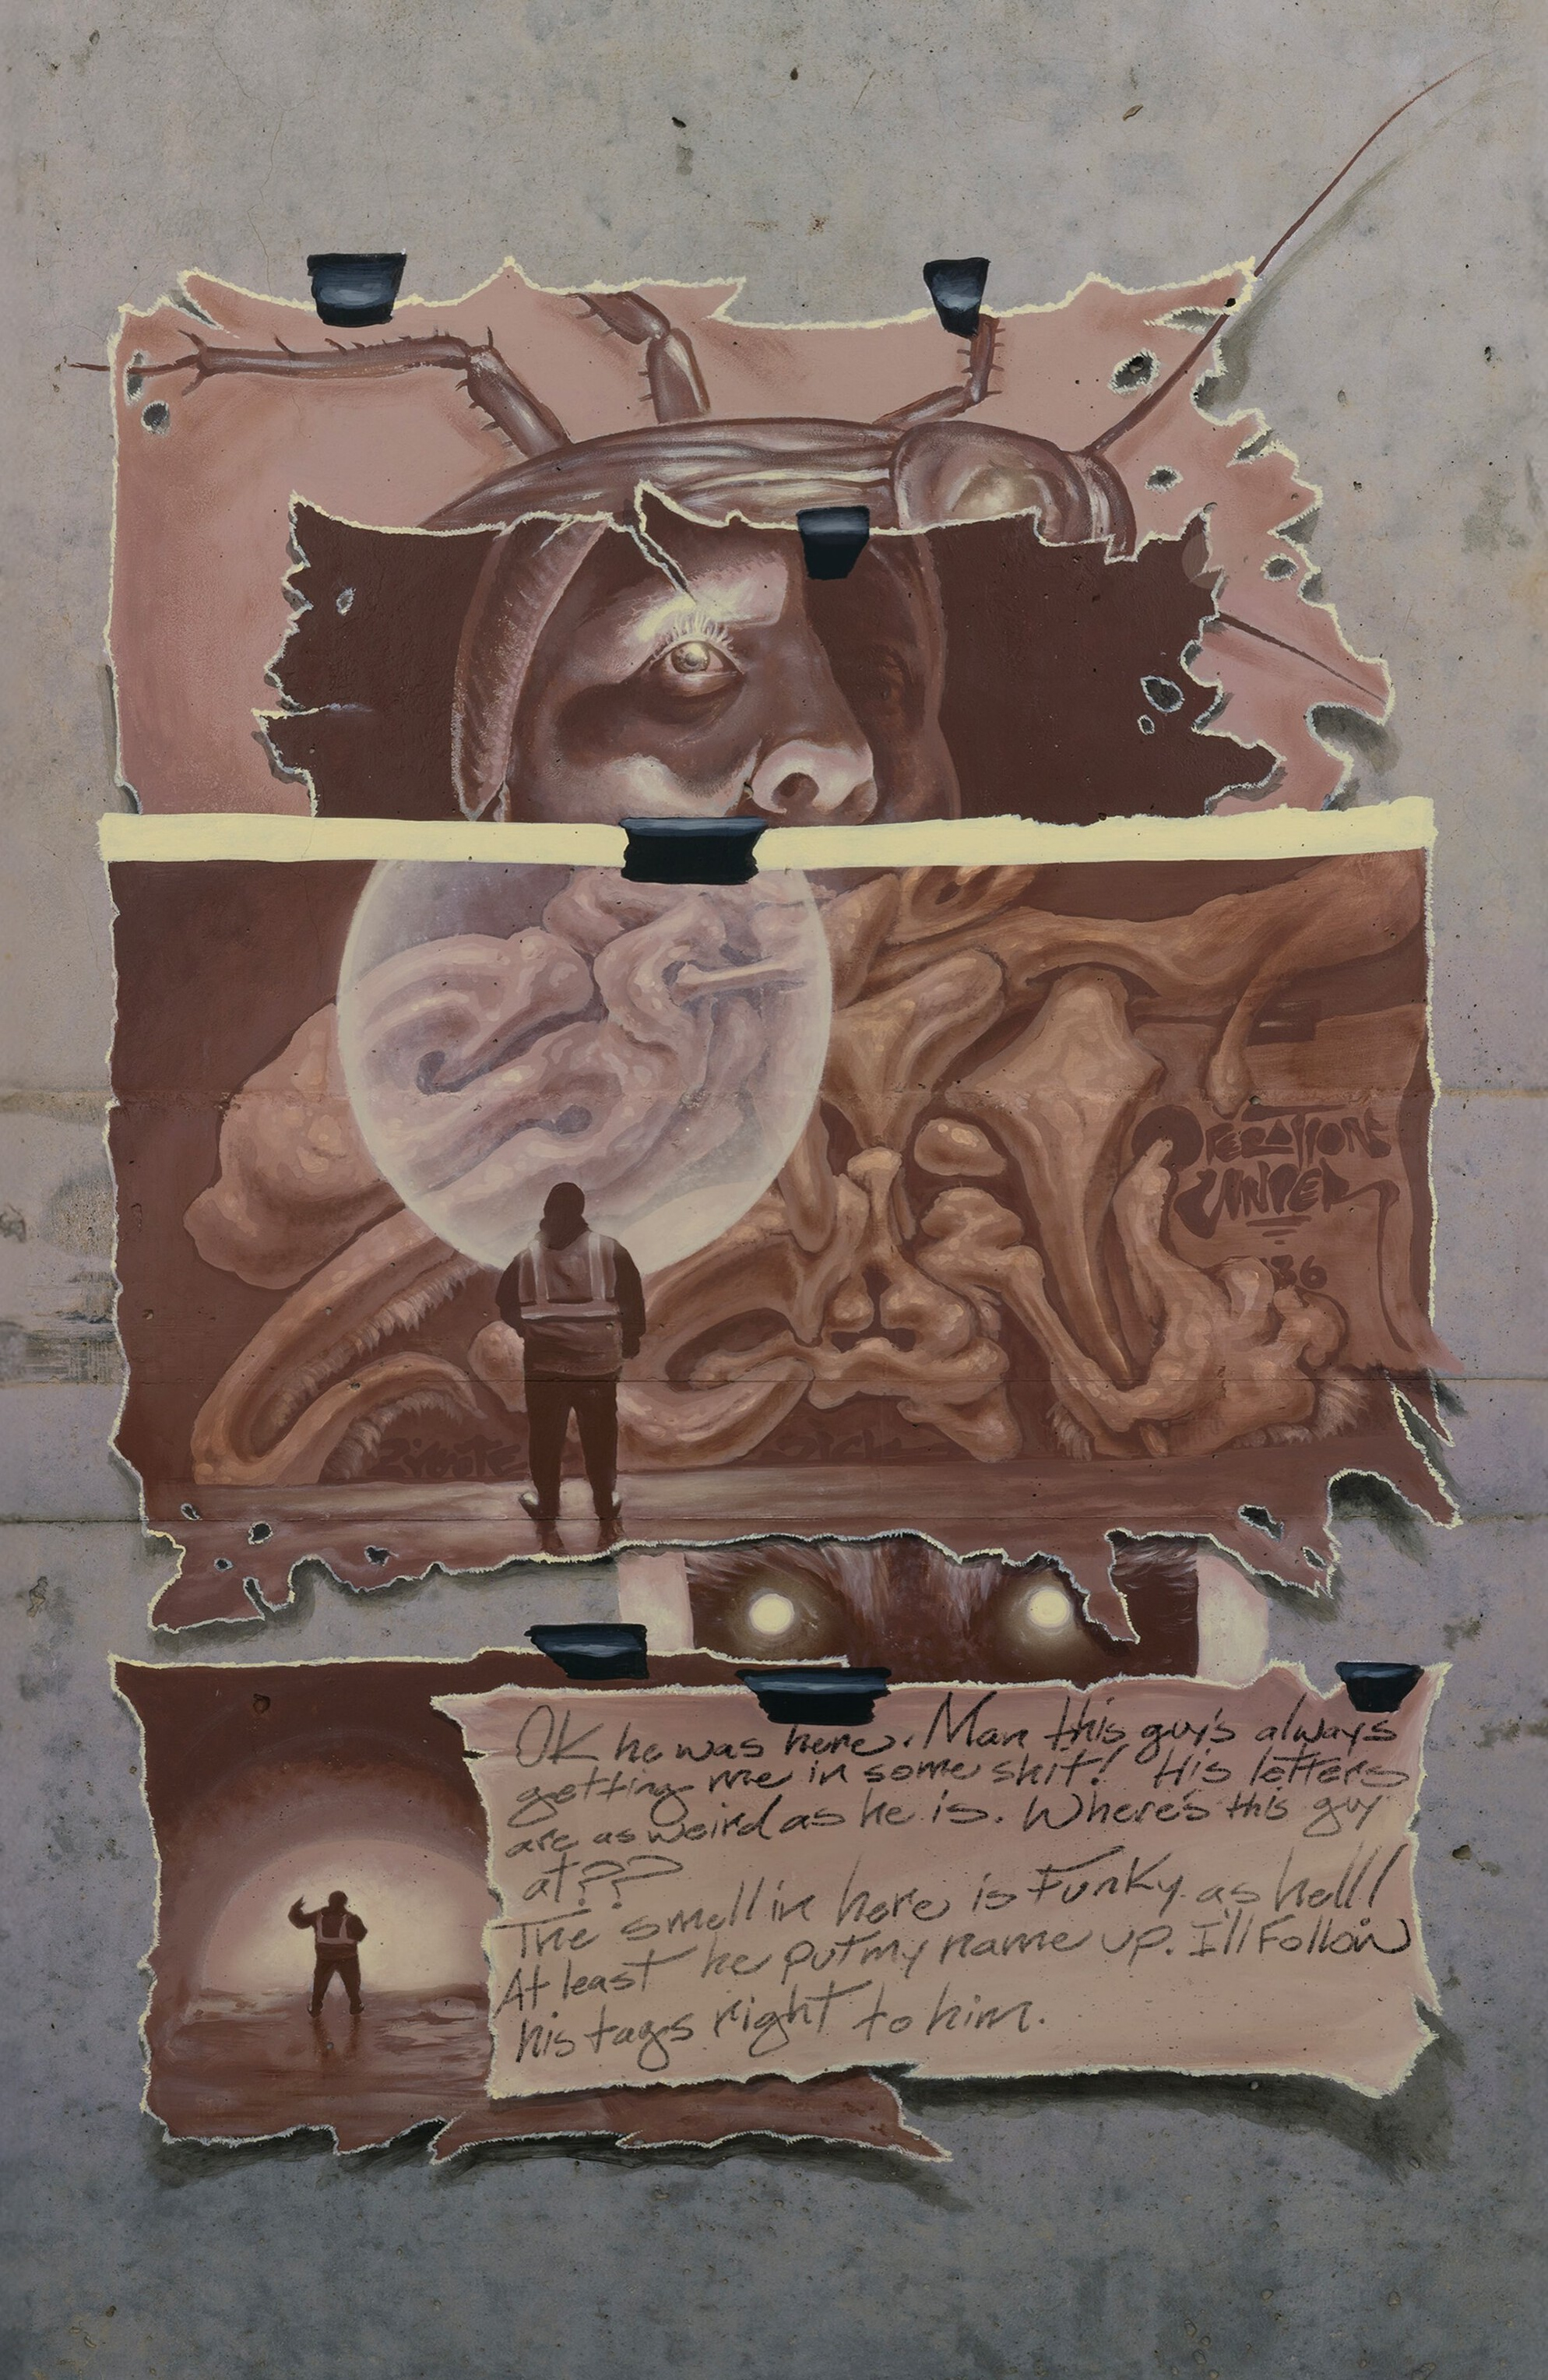 OPERATION
UNDER
36
OK he was here. Man this guy's always
getting me in some shit! His letters
are as weird as he is. Where's this guy
at??
The smell in here is Funky as hell!
At least he put my name up. I'll Follow
his tags right to him.